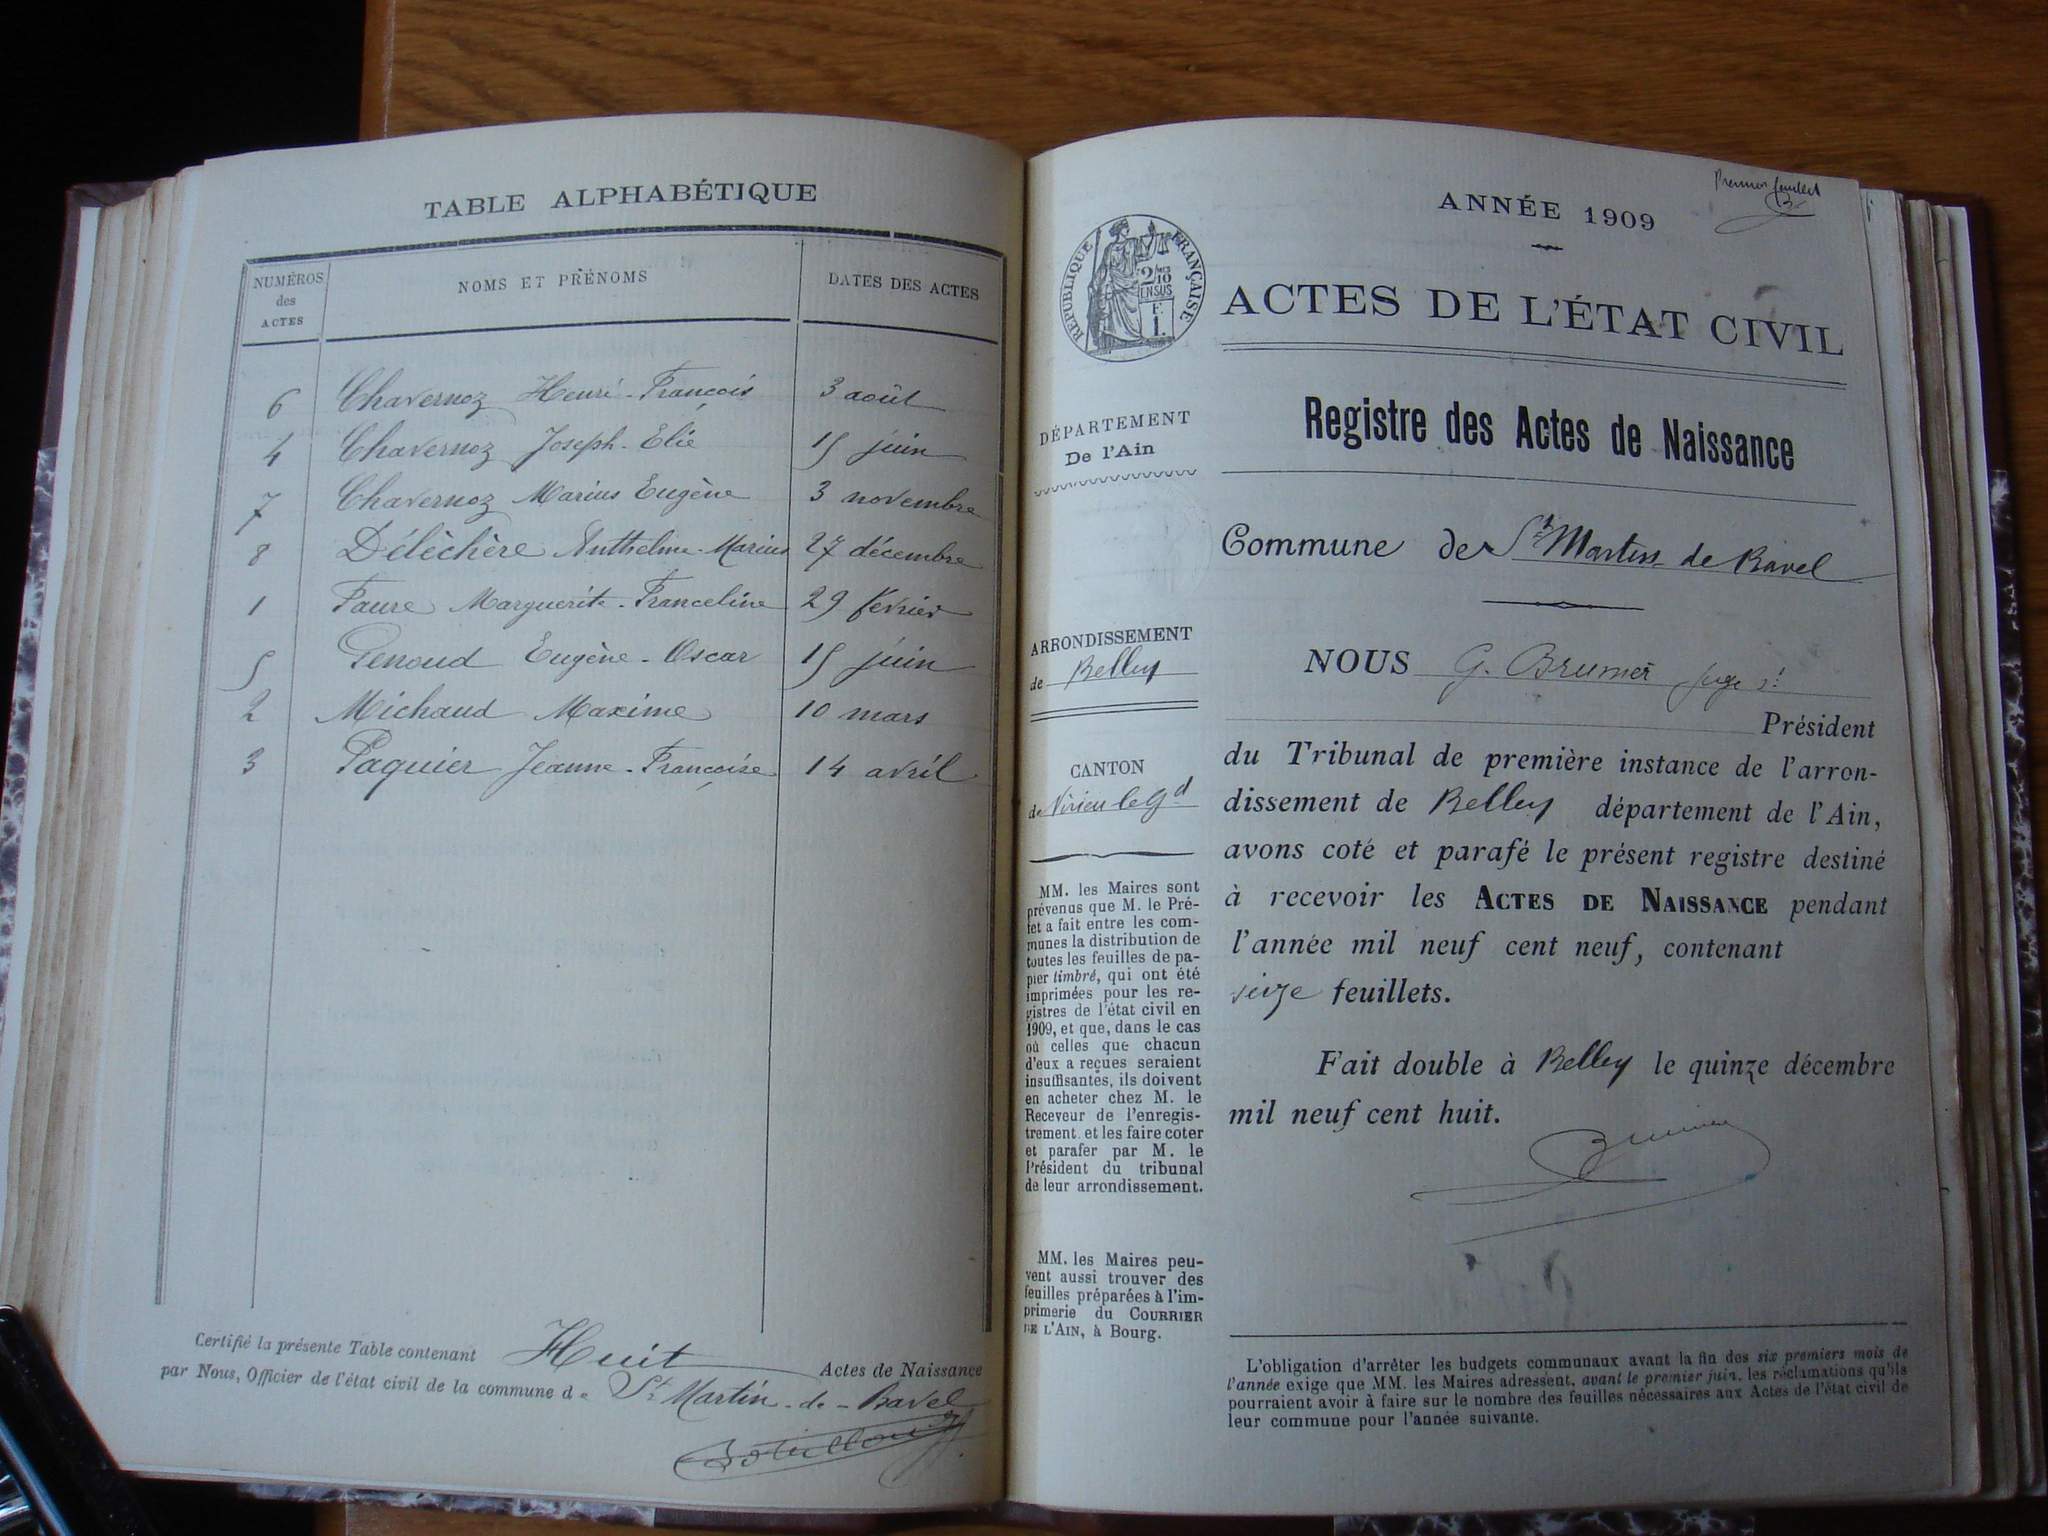 TABLE ALPHABÉTIQUE
NUMÉROS
des
ACTES
NOMS ET PRÉNOMS
DATES DES ACTES
6 Chavernoz Henri-François 3 août
4 Chavernoz Joseph-Elie 15 juin
7 Chavernoz Marius Eugène 3 novembre
8 Délèchère Anthelme-Marius 27 décembre
1 Faure Marguerite-Franceline 29 février
5 Genoud Eugène-Oscar 15 juin
2 Michaud Maxime 10 mars
3 Paquier Jeanne-Françoise 14 avril
Certifié la présente Table contenant Huit Actes de Naissance
par Nous, Officier de l'état civil de la commune de St Martin-de-Bavel
ANNÉE 1909
RÉPUBLIQUE FRANÇAISE
2/10
EN SUS
F.
1.
ACTES DE L'ÉTAT CIVIL
Registre des Actes de Naissance
Commune de St Martin de Bavel
NOUS G. Brunet juge
Président
du Tribunal de première instance de l'arron-
dissement de Belley département de l'Ain,
avons coté et parafé le présent registre destiné
à recevoir les ACTES DE NAISSANCE pendant
l'année mil neuf cent neuf, contenant
seize feuillets.
Fait double à Belley le quinze décembre
mil neuf cent huit.
DÉPARTEMENT
De l'Ain
ARRONDISSEMENT
de Belley
CANTON
de Virieu le Gd
MM. les Maires sont
prévenus que M. le Pré-
fet a fait entre les com-
munes la distribution de
toutes les feuilles de pa-
pier timbré, qui ont été
imprimées pour les re-
gistres de l'état civil en
1909, et que, dans le cas
où celles que chacun
d'eux a reçues seraient
insuffisantes, ils doivent
en acheter chez M. le
Receveur de l'enregis-
trement. et les faire coter
et parafer par M. le
Président du tribunal
de leur arrondissement.
MM. les Maires peu-
vent aussi trouver des
feuilles préparées à l'im-
primerie du COURRIER
DE L'AIN, à Bourg.
L'obligation d'arrêter les budgets communaux avant la fin des six premiers mois de
l'année exige que MM. les Maires adressent, avant le premier juin, les réclamations qu'ils
pourraient avoir à faire sur le nombre des feuilles nécessaires aux Actes de l'état civil de
leur commune pour l'année suivante.